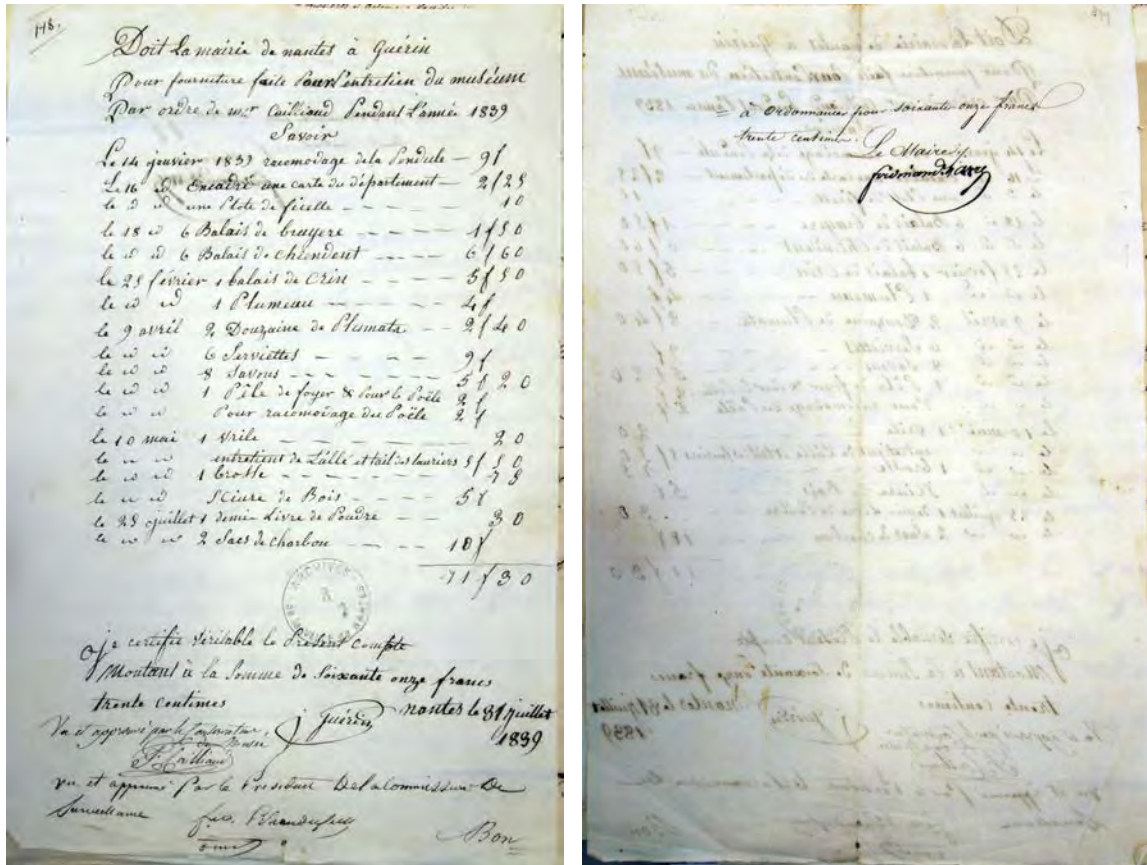 118.
Doit La mairie de nantes à Guérin
Pour fourniture faite Pour l'entretien du muséum
Par ordre de mr Cailliaud Pendant l'année 1839
Savoir
Le 14 janvier 1839 racomodage dela Pendule — 9f
Le 16 id Encadré une carte du département — 2f25
le d id une Plote de ficelle — 10
le 18 id 6 Balais de bruyere — 1f50
le id id 6 Balais de chiendent — 6f60
le 25 février 1 balais de Crin — 5f50
le id id 1 Plumeau — 4f
le 9 avril 2 Douzaine de Plumata — 2f40
le id id 6 Serviettes — 9f
le id id 8 Savons — 5f20
le id id 1 Pêle de foyer & Pour le Poële 2f
le id id Pour racomodage du Poële 2f
le 10 mai 1 Vrile — 20
le id id entretient de L'allé et tail des lauriers 5f50
le id id 1 brosse — 75
le id id Sciure de Bois — 5f
le 25 juillet 1 demie Livre de Poudre — 30
le id id 2 Sacs de charbon — 10f
71f30
ARCHIVES
je certifie Véritable le Présent Compte
Montant à la Somme de Soixante onze francs
trente centimes nantes le 31 juillet
1839
j guérin
Vu et approuvé par le Conservateur
du Musée
F. Cailliaud
vu et approuvé par le President De la Commission De
Surveillance
Bon
à ordonnancer pour soixante onze francs
trente centimes.
Le Maire
ferdinand favre